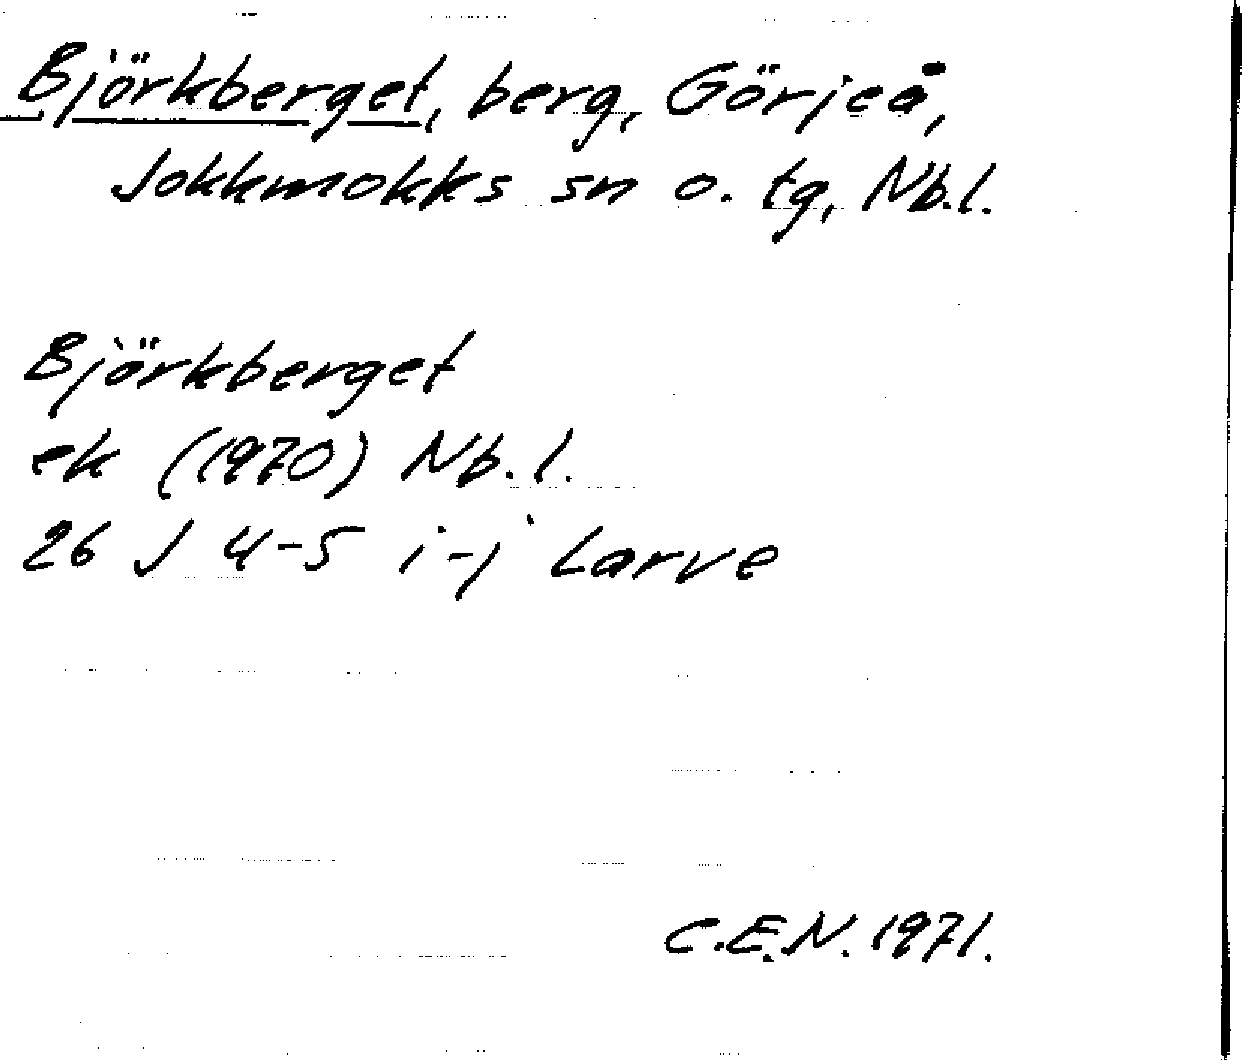 Björkberget, berg, Görjeå,
Jokkmokks sn o. tg, Nb.l.
Björkberget
ek (1970) Nb.l.
26 J 4-5 i-j Larve
C.E.N. 1971.